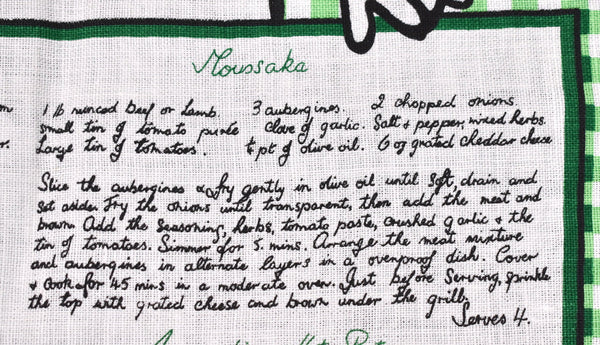 Moussaka
1 lb minced beef or lamb. 3 aubergines. 2 chopped onions.
small tin of tomato purée Clove of garlic. Salt & pepper, mixed herbs.
Large tin of tomatoes. ¼ pt of olive oil. 6 oz grated cheddar cheese
Slice the aubergines & fry gently in olive oil until soft, drain and
set aside. Fry the onions until transparent, then add the meat and
brown. Add the seasoning, herbs, tomato paste, crushed garlic & the
tin of tomatoes. Simmer for 5. mins. Arrange the meat mixture
and aubergines in alternate layers in a ovenproof dish. Cover
& cook for 45 mins in a moderate oven. Just before serving, sprinkle
the top with grated cheese and brown under the grill.
Serves 4.